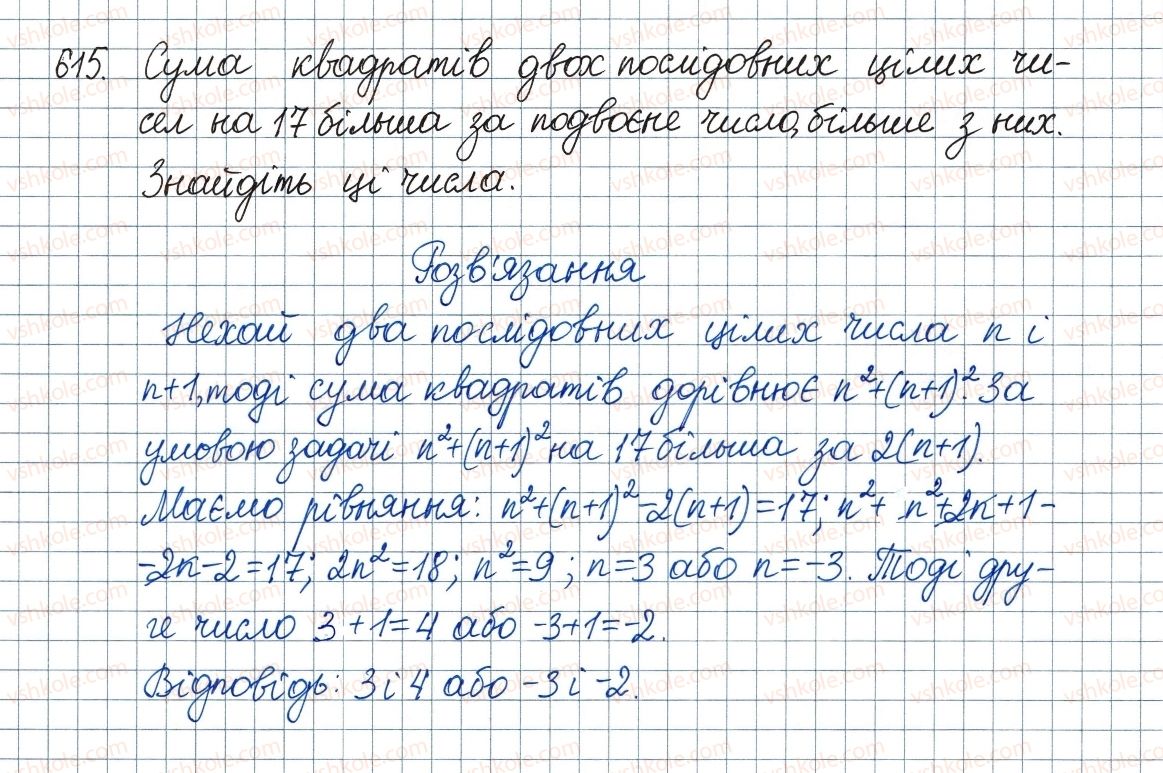 615. Сума квадратів двох послідовних цілих чи-
сел на 17 більша за подвоєне число, більше з них.
Знайдіть ці числа.
Розв'язання
Нехай два послідовних цілих числа n і
n+1, тоді сума квадратів дорівнює n²+(n+1)². За
умовою задачі n²+(n+1)² на 17 більша за 2(n+1).
Маємо рівняння: n²+(n+1)²-2(n+1)=17; n²+ n²+2n+1-
-2n-2=17; 2n²=18; n²=9; n=3 або n=-3. Тоді дру-
ге число 3+1=4 або -3+1=-2.
Відповідь: 3 і 4 або -3 і -2.